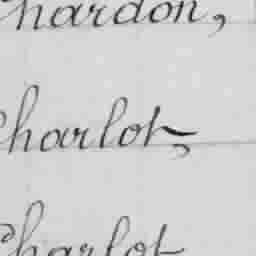 hardon,
Charlot,
Charlot